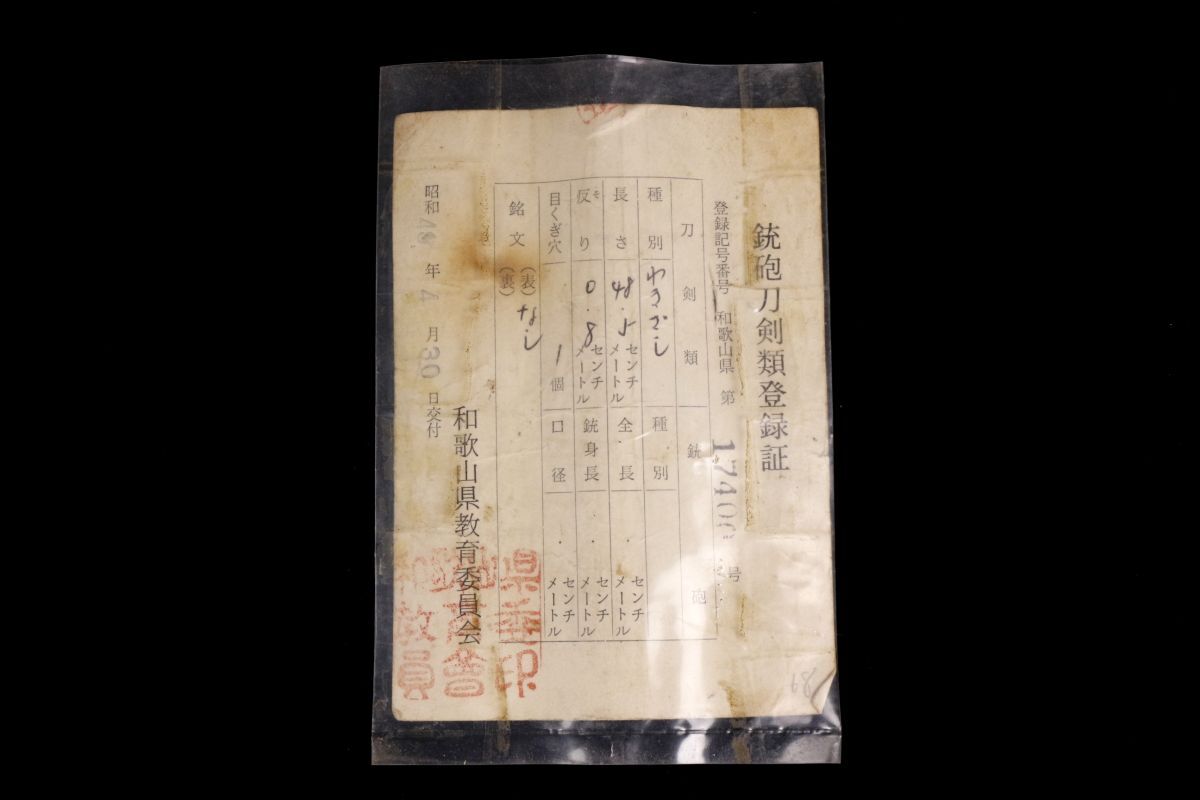 銃砲刀剣類登録証
登録記号番号 和歌山県 第 号
刀剣類 銃砲
種別 わきざし 種別
長さ 48.5 センチメートル 全長 . センチメートル
反り ソ 0.8 センチメートル 銃身長 . センチメートル
目くぎ穴 1個 口径 . センチメートル
銘文 (表) (裏) なし
昭和 年 4 月 30 日交付
和歌山県教育委員会